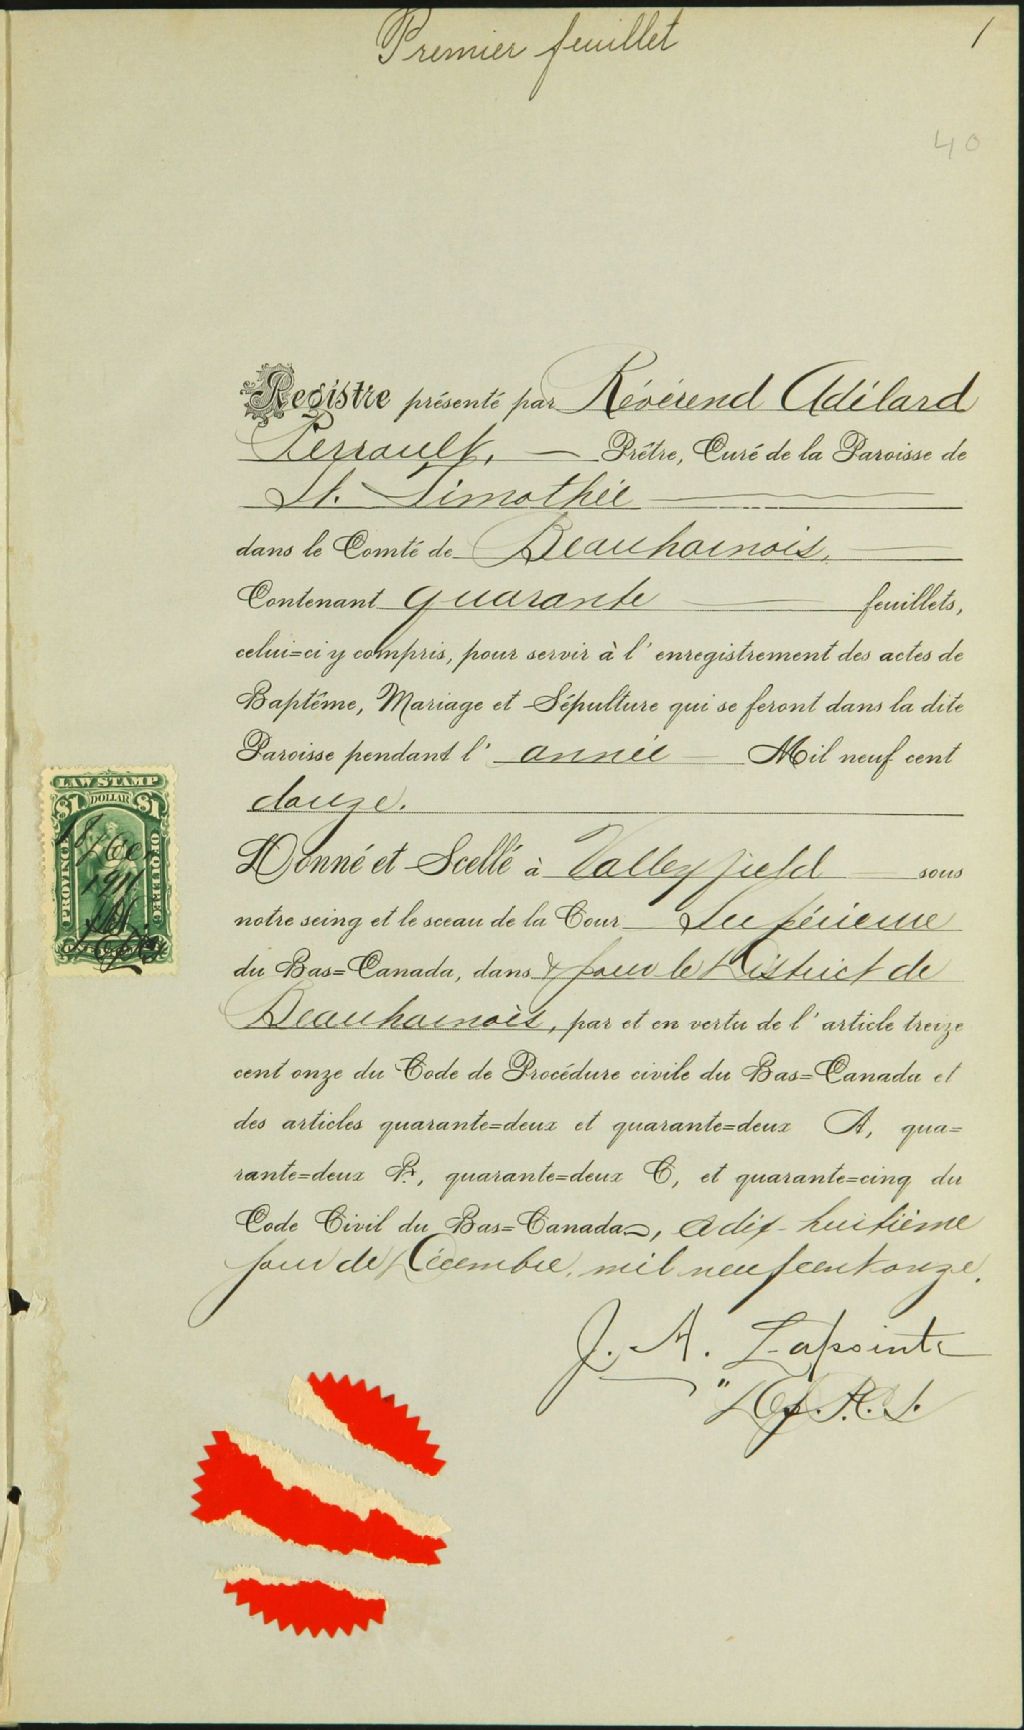 Premier feuillet
1
40
Registre présenté par Révérend Adélard
Perrault, — Prêtre, Curé de la Paroisse de
St. Timothée
dans le Comté de Beauharnois,
Contenant quarante feuillets,
celui=ci y compris, pour servir à l'enregistrement des actes de
Baptême, Mariage et Sépulture qui se feront dans la dite
Paroisse pendant l'année — Mil neuf cent
douze.
Donné et Scellé à Valleyfield sous
notre seing et le sceau de la Cour Supérieure
du Bas=Canada, dans & pour le District de
Beauharnois, par et en vertu de l'article treize
cent onze du Code de Procédure civile du Bas=Canada et
des articles quarante=deux et quarante=deux A, qua=
rante=deux B, quarante=deux C, et quarante=cinq du
Code Civil du Bas=Canada, ce dix-huitième
jour de Décembre, mil neuf cent onze.
J. A. Lapointe
Dep. P. C. S.
LAW STAMP
$1 DOLLAR $1
PROVINCE OF QUEBEC
18 / Dec
1911